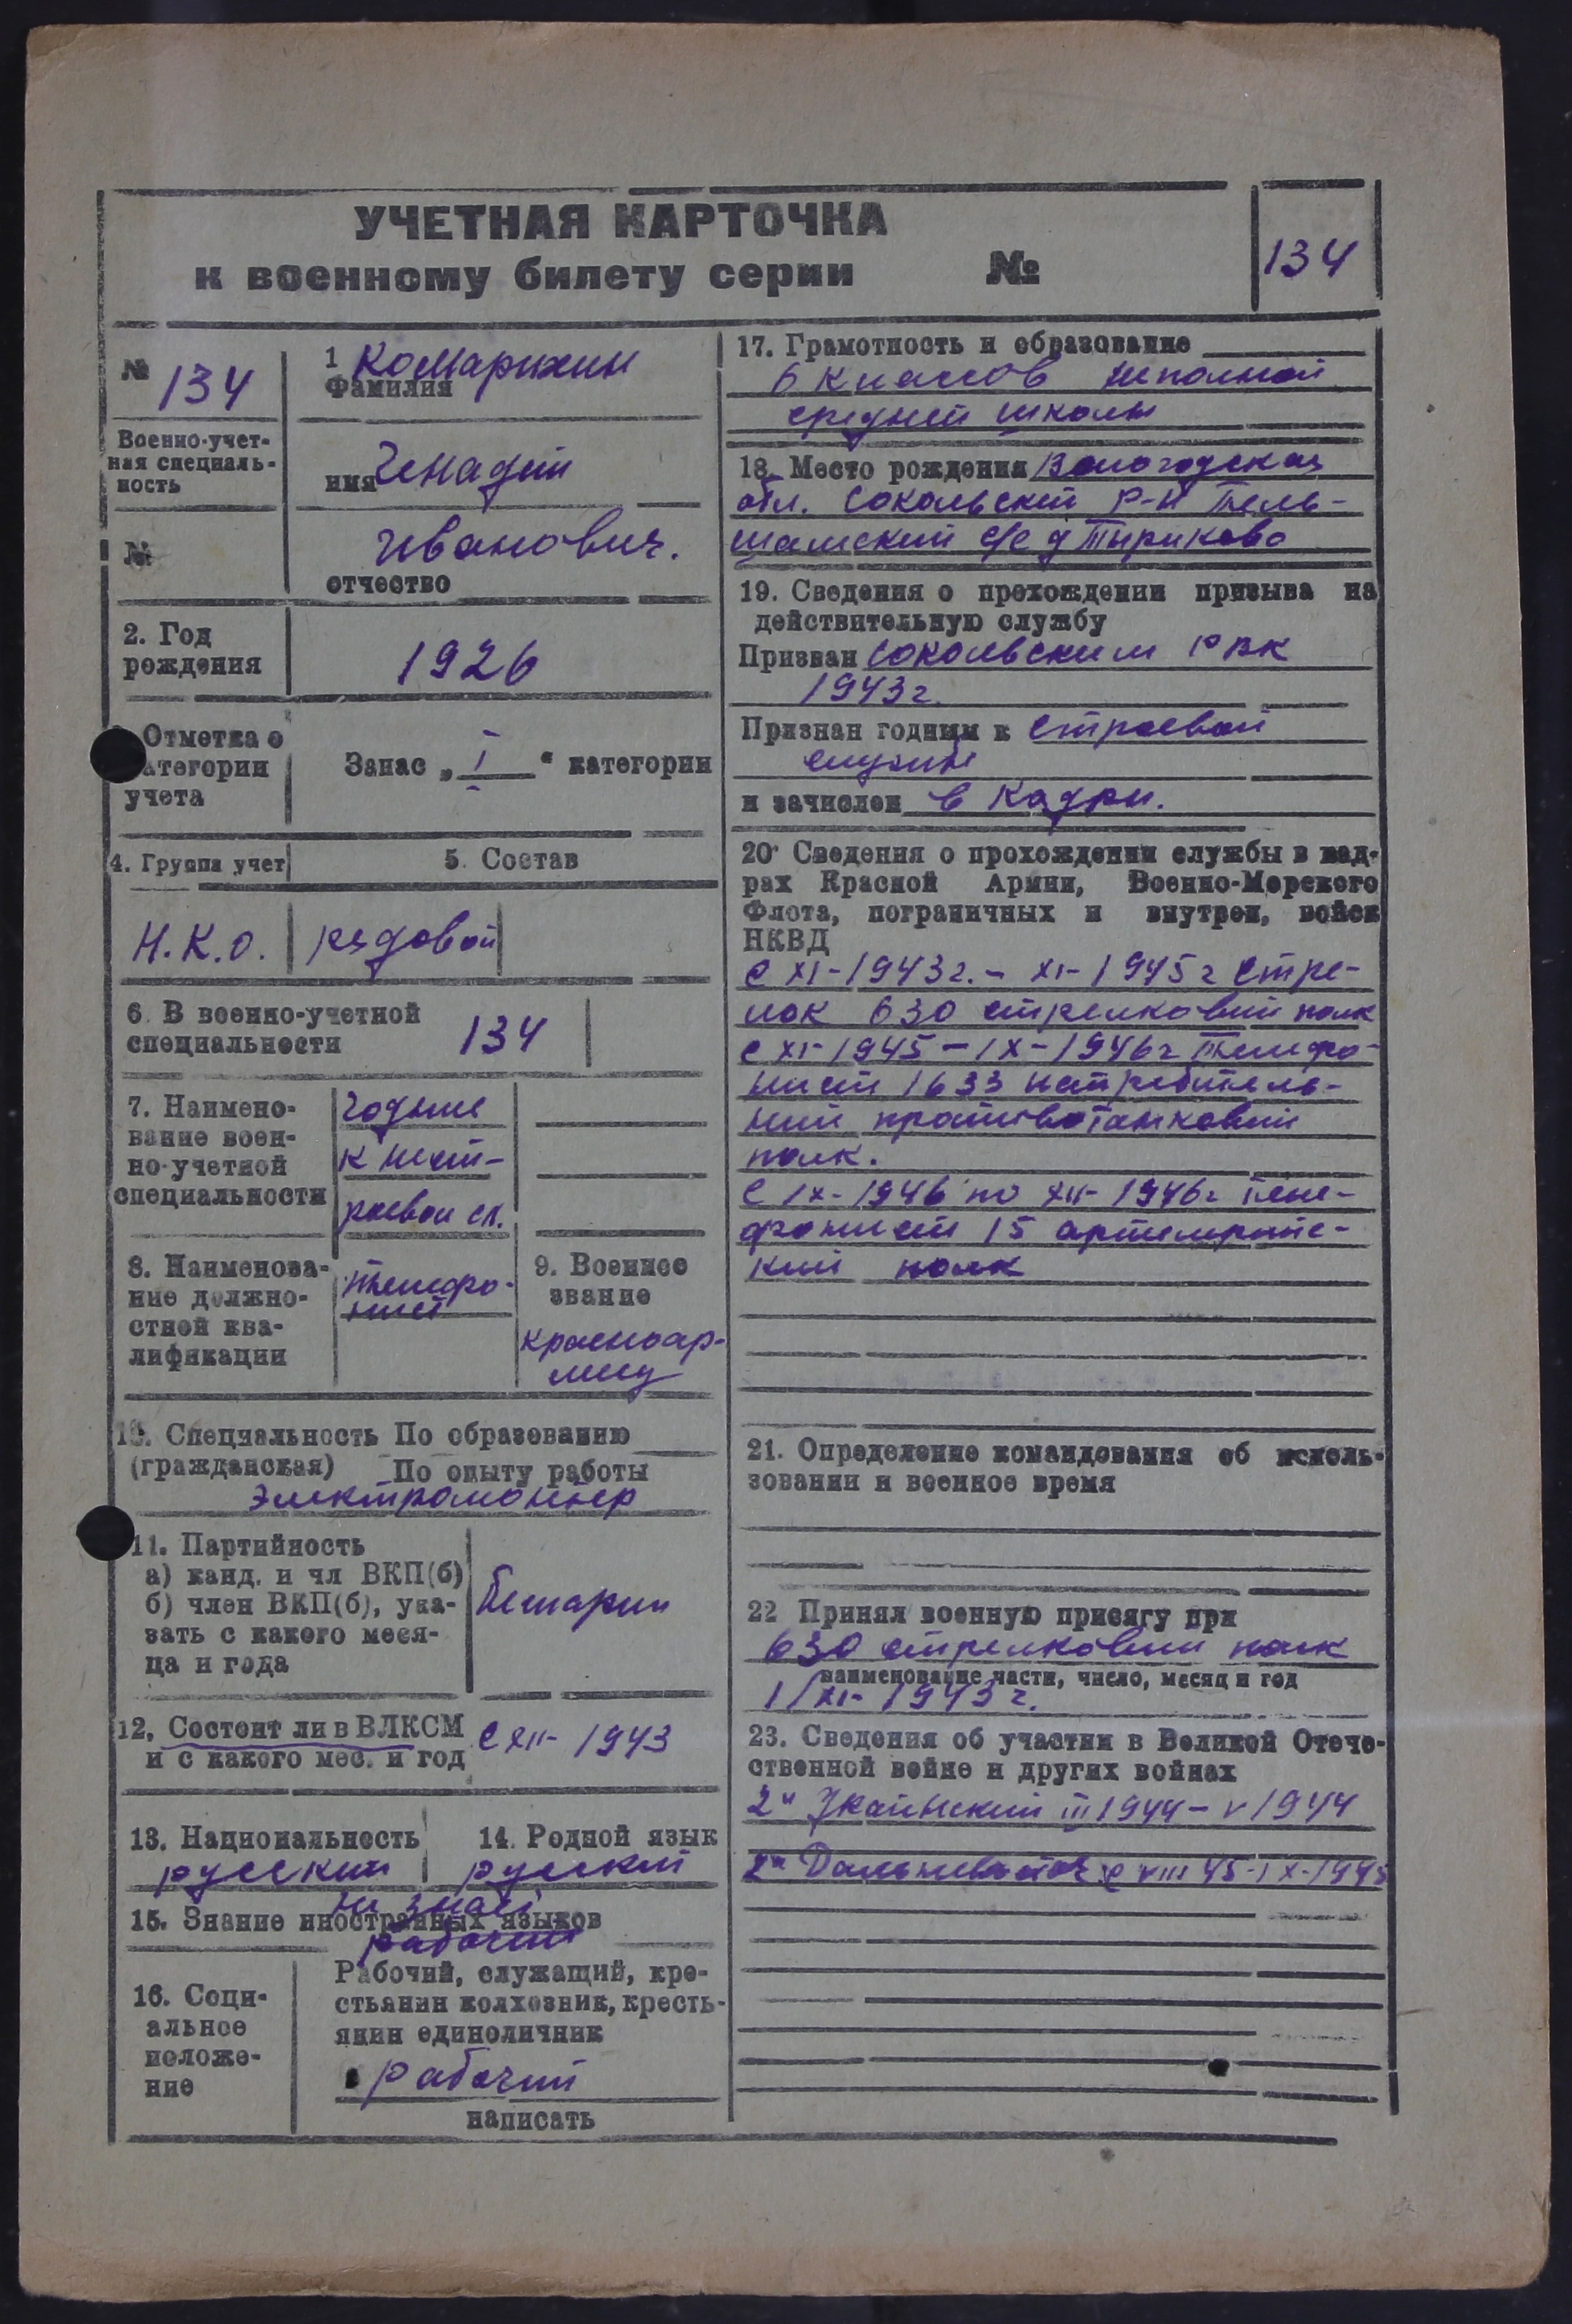 УЧЕТНАЯ КАРТОЧКА
к военному билету серии №
134
№
134
1 Комарихин
Фамилия
Военно-учет-
ная специаль-
ность
имя Генадий
№
Иванович.
отчество
2. Год
рождения
1926
Отметка о
атегории
учета
Запас „ I " категории
4. Группа учет
5. Состав
Н.К.О.
рядовой
6. В военно-учетной
специальности
134
7. Наимено-
вание воен-
но-учетной
специальности
годные
к нест-
роевой сл.
8. Наименова-
ние должно-
стной ква-
лификации
Телефо-
нист
9. Военное
звание
красноар-
меец
10. Специальность По образованию
(гражданская) По опыту работы
Электромонтер
11. Партийность
а) канд. и чл ВКП(б)
б) член ВКП(б), ука-
зать с какого меся-
ца и года
12, Состоит ли в ВЛКСМ
и с какого мес. и год
с XII- 1943
13. Национальность
русский
14. Родной язык
русский
не знает
15. Знание иностранных языков
рабочий
16. Соци-
альное
положе-
ние
Рабочий, служащий, кре-
стьянин колхозник, кресть-
янин единоличник
рабочий
написать
17. Грамотность и образование
6 классов неполной
средней школы
18. Место рождения Вологодская
обл. Сокольский р-н
с/с д
19. Сведения о прохождении призыва на
действительную службу
Призван Сокольским РВК
1943г.
Признан годным к строевой
службе
и зачислен в кадры.
20. Сведения о прохождении службы в кад-
рах Красной Армии, Военно-Морского
Флота, пограничных и внутрен, войск
НКВД
с XI-1943г. - XI-1945г стре-
лок 630 стрелковый полк
с XI-1945 - IX-1946г телефо-
нист 1633 истребитель-
ный противотанковый
полк.
с IX-1946 по XII-1946г теле-
фонист 15 артиллрийс-
кий полк
21. Определение командования об исполь-
зовании и военное время
22 Принял военную присягу при
630 стрелковый полк
наименование части, число, месяц и год
1/XI-1943г.
23. Сведения об участии в Великой Отече-
ственной войне и других войнах
2й III 1944 - V 1944
с VIII 45-IX-1945